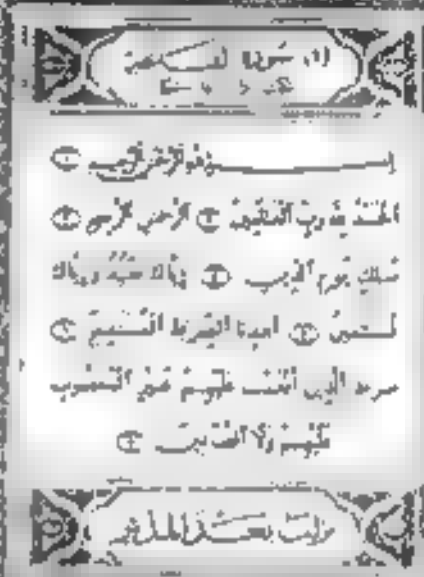 (١) سورة الفاتحة
بسم الله الرحمن الرحيم ١
الحمد لله رب العلمين ٢ الرحمن الرحيم ٣
ملك يوم الدين ٤ إياك نعبد وإياك
نستعين ٥ اهدنا الصرط المستقيم ٦
صرط الذين أنعمت عليهم غير المغضوب
عليهم ولا الضالين ٧
نزلت بعد المدثر